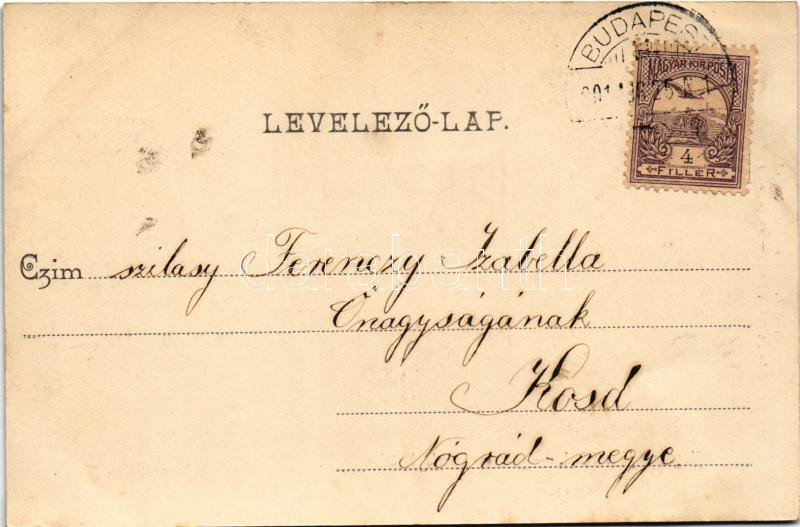 BUDAPEST
MAGYAR KIR. POSTA
4
FILLER
LEVELEZŐ-LAP.
Czim szilasy Ferenczy Izabella
Őnagyságának
Kosd
Nógrád-megye.
darabanth